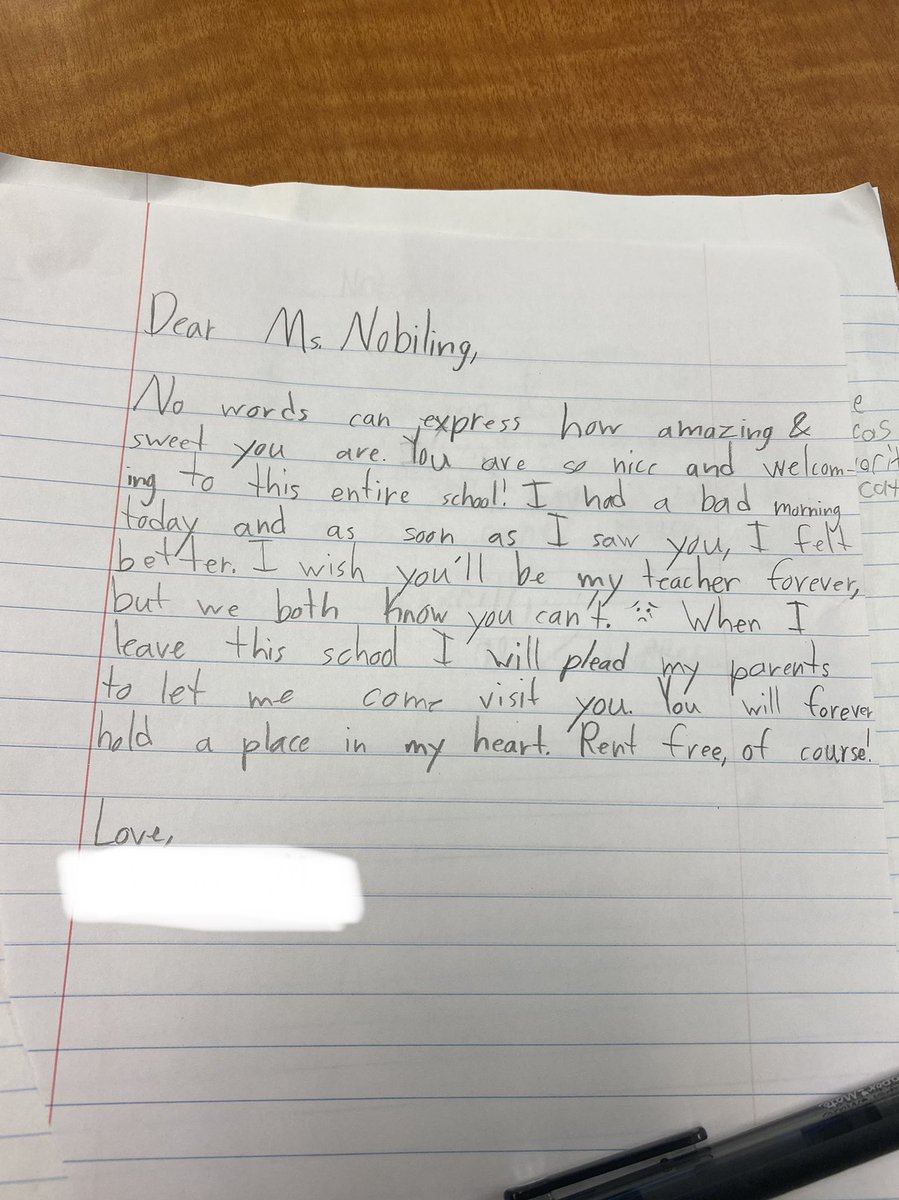 Dear Ms. Nobiling,
No words can express how amazing &
sweet you are. You are so nice and welcom-
ing to this entire school! I had a bad morning
today and as soon as I saw you, I felt
better. I wish you'll be my teacher forever,
but we both know you can't. :( When I
leave this school I will plead my parents
to let me come visit you. You will forever
hold a place in my heart. Rent free, of course!
Love,